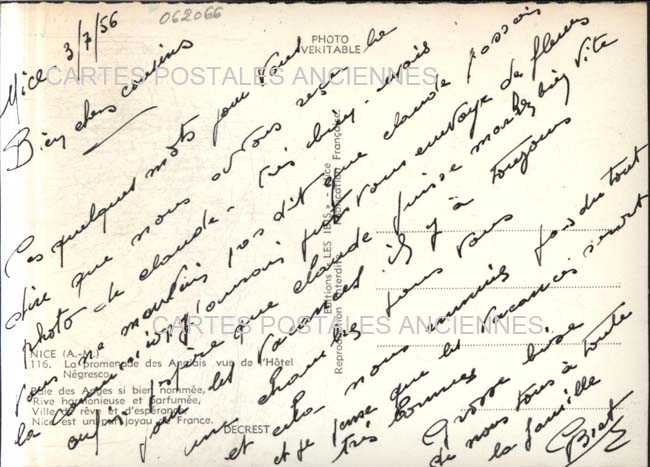 062066
Nice 3/7/56
Bien chers cousins
Ces quelques mots pour vous
dire que nous avons reçu la
photo de claude - très bien - mais
vous ne m'aviez pas dit que claude passais
la communion j'aurais vous envoyé de fleurs
j'espère que claude puisse marcher bien vite
pour les vacances il y a toujours
une chambre pour vous
et cela nous ennuie pas du tout
et je pense que les vacances seront
très bonnes
Grosse bise
de nous tous à toute
la famille
PHOTO
VERITABLE
CARTES POSTALES ANCIENNES
CARTES POSTALES ANCIENNES
Editions « LES IRIS » - Nice
Reproduction Interdite - Fabrication Française
NICE (A.-M.)
116. La promenade des Anglais vue de l'Hôtel
Négresco.
Baie des Anges si bien nommée,
Rive harmonieuse et parfumée,
Ville de rêve et d'espérance
Nice est un pur joyau de France.
DECREST